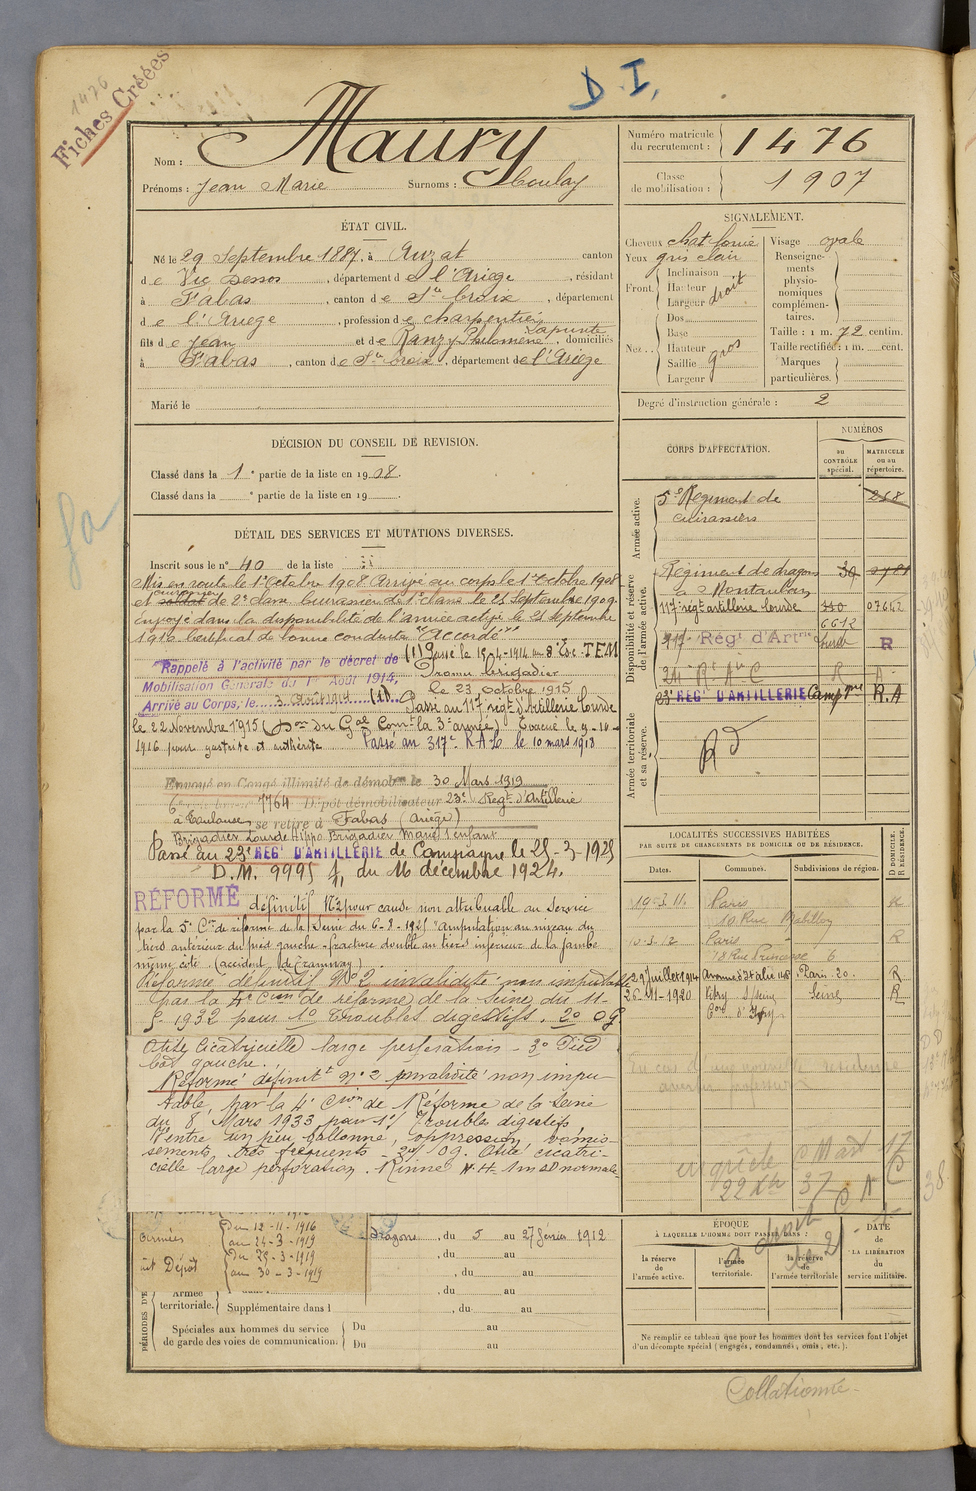 1476
Fiches Créées
D. I.
Nom : Maury
Prénoms : Jean Marie Surnoms : Coulay
Numéro matricule du recrutement : 1476
Classe de mobilisation : 1907
ÉTAT CIVIL.
Né le 29 Septembre 1887, à Auzat canton
de Vic Dessos, département de l'Ariège, résidant
à Fabas, canton de Ste Croix, département
de l'Ariège, profession de charpentier
fils de Jean et de Ranzy Philomène Lapunte, domiciliés
à Fabas, canton de Ste Croix, département de l'Ariège
Marié le
SIGNALEMENT.
Cheveux chat foncé
Yeux gris clair
Front. Inclinaison
Hauteur
Largeur droit
Nez. Dos
Base
Hauteur
Saillie gros
Largeur
Visage ovale
Renseignements physionomiques complémentaires.
Taille : 1 m. 72 centim.
Taille rectifiée : 1 m. cent.
Marques particulières.
Degré d'instruction générale : 2
DÉCISION DU CONSEIL DE REVISION.
Classé dans la 1e partie de la liste en 1908.
Classé dans la e partie de la liste en 19
DÉTAIL DES SERVICES ET MUTATIONS DIVERSES.
Inscrit sous le n° 40 de la liste
Mis en route le 1er Octobre 1908 Arrivé au corps le 1er Octobre 1908
et soldat de 2e classe Cuirassier de 1e classe le 25 Septembre 1909
Envoyé dans la disponibilité de l'armée active le 25 Septembre
1910 Certificat de bonne conduite "Accordé"
Rappelé à l'activité par le décret de
Mobilisation Générale du 1er Août 1914,
Arrivé au Corps, le 3 Août 1914 (1)
(1) Passé le 15-4-1914 au 8e Esc. TEM
Promu brigadier
le 23 octobre 1915
Passé au 117e régt d'Artillerie lourde
le 22 Novembre 1915 (Don du Gal Comt la 3e armée) Evacué le 9-10-
1916 pour gastrite et enthérite Passé au 317e R.A.L. le 10 mars 1918
Envoyé en Congé illimité de démobon le 30 Mars 1919
7764 Dépôt démobilisateur 23e Régt d'Artillerie
à Toulouse se retire à Fabas (Ariège)
Brigadier Lourde Hippo Brigadier Marié 1 enfant
Passé au 23e REGt D'ARTILLERIE de Campagne le 25-3-1925
D.M. 9995 1/11 du 16 décembre 1924.
RÉFORMÉ définitif N°2 pour cause non attribuable au Service
par la 5e Con de réforme de la Seine du 6-8-1925 "Amputation au niveau du
tiers antérieur du pied gauche - fracture double au tiers inférieur de la jambe
même côté. (accident de tramway)
Réformé définitif N°2 invalidité non imputable
par la 4e Cion de réforme de la Seine du 11-
5-1932 pour 1° Troubles digestifs. 2° OG
Otite cicatricielle large perforation - 3° Pied
bot gauche.
Réformé définitt n°2 invalidité non impu-
table, par la 4e Cion de Réforme de la Seine
du 8 Mars 1933 pour 1°/ Troubles digestifs
Ventre un peu ballonné, oppression, vomis-
sements très fréquents - 2°/ OG. Otite cicatri-
cielle large perforation. Rinne 1m OD normale
CORPS D'AFFECTATION.
NUMÉROS
au CONTRÔLE spécial.
MATRICULE ou au répertoire.
Armée active.
5e Régiment de cuirassiers 268
Disponibilité et réserve de l'armée active.
Régiment de dragons à Montauban 30
117e régt artillerie lourde 07642
6612
317e Régt d'Artrie lourde R
24e Rt Aie C R A
Armée territoriale et sa réserve.
23e REGt D'ARTILLERIE Campne R.A
Rd
LOCALITÉS SUCCESSIVES HABITÉES
PAR SUITE DE CHANGEMENTS DE DOMICILE OU DE RÉSIDENCE.
Dates. Communes. Subdivisions de région. D DOMICILE. R RÉSIDENCE.
19-3-11. Paris R
10 Rue Mabillon
Paris R
18 Rue Princesse 6
29 Juillet 1914 Avenue d'Italie 148 Paris 20. R
26-11-1920 Vitry s/Seine Seine R
enquête
22 37
38
Armées
du 12-11-1916
au 24-3-1919
Dépôt
du 25-3-1919
au 30-3-1919
dragons, du 5 au 27 février 1912
, du au
, du au
, du au
Armée territoriale.
Supplémentaire dans l , du au
Spéciales aux hommes du service de garde des voies de communication.
Du au
Du au
PÉRIODES D'E
ÉPOQUE
À LAQUELLE L'HOMME DOIT PASSER DANS :
la réserve de l'armée active.
l'armée territoriale.
la réserve de l'armée territoriale
DATE de LA LIBÉRATION du service militaire.
Ne remplir ce tableau que pour les hommes dont les services font l'objet
d'un décompte spécial (engagés, condamnés, omis, etc.).
Collationné